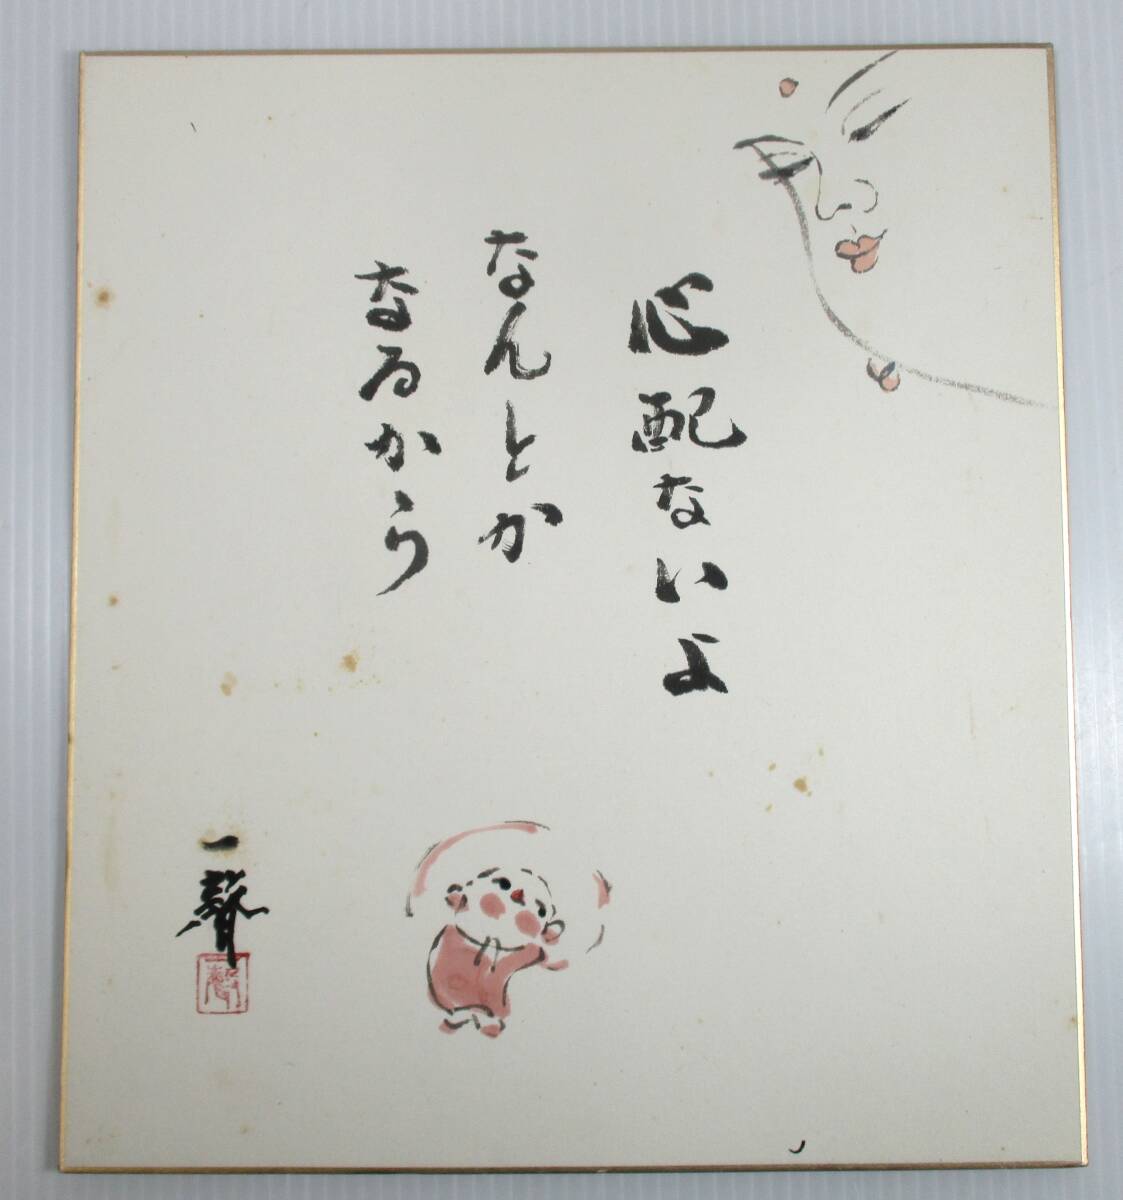 心配ないよ
なんとか
なるから
一声